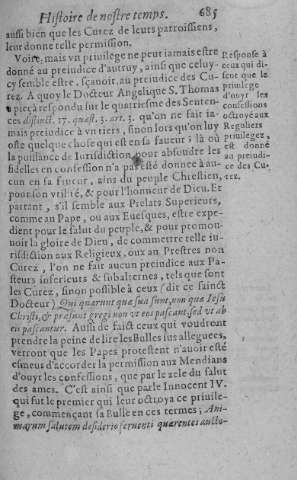 Histoire de nostre temps. 685
aussi bien que les Curez de leurs parroissiens,
leur donne telle permission.
Voire, mais vn priuilege ne peut iamais estre
donné au preiudice d'autruy, ainsi que celuy-
cy semble estre, sçauoir, au preiudice des Cu-
rez. A quoy le Docteur Angelique S. Thomas
a pieçà respondu sur le quatriesme des Senten-
ces distinct. 17. quæst. 3. art. 3. qu'on ne fait ia-
mais preiudice à vn tiers, sinon lors qu'on luy
oste quelque chose qui est en sa faueur: là où
la puissance de Iurisdiction pour absoudre les
fidelles en confession n'a pas esté donnée à au-
cun en sa faueur, ains du peuple Chrestien,
pour son vtilité, & pour l'honneur de Dieu. Et
partant, s'il semble aux Prelats Superieurs,
comme au Pape, ou aux Euesques, estre expe-
dient pour le salut du peuple, & pour promou-
uoir la gloire de Dieu, de commettre telle iu-
risdiction aux Religieux, oux au Prestres non
Curez, l'on ne fait aucun preiudice aux Pa-
steurs inferieurs & subalternes, tels que sont
les Curez, sinon possible à ceux (dit ce sainct
Docteur) Qui quærunt quæ sua sunt, non quæ Iesu
Christi, & præsunt gregi non vt eos pascant, sed vt ab
eis pascantur. Aussi de faict ceux qui voudront
prendre la peine de lire les Bulles ius alleguees,
verront que les Papes protestent n'auoir esté
esmeus d'accorder la permission aux Mendians
d'ouyr les confessions, que par le zele du salut
des ames. C'est ainsi que parle Innocent IV.
qui fut le premier qui leur octroya ce priuile-
ge, commençant sa Bulle en ces termes; Ani-
marum salutem desiderio feruenti quærentes
Response à
ceux qui di-
sent que le
priuilege
d'ouyr les
confessions
octroyé aux
Reguliers
priuilegez,
est donné
au preiudi-
ce des Cu-
rez.